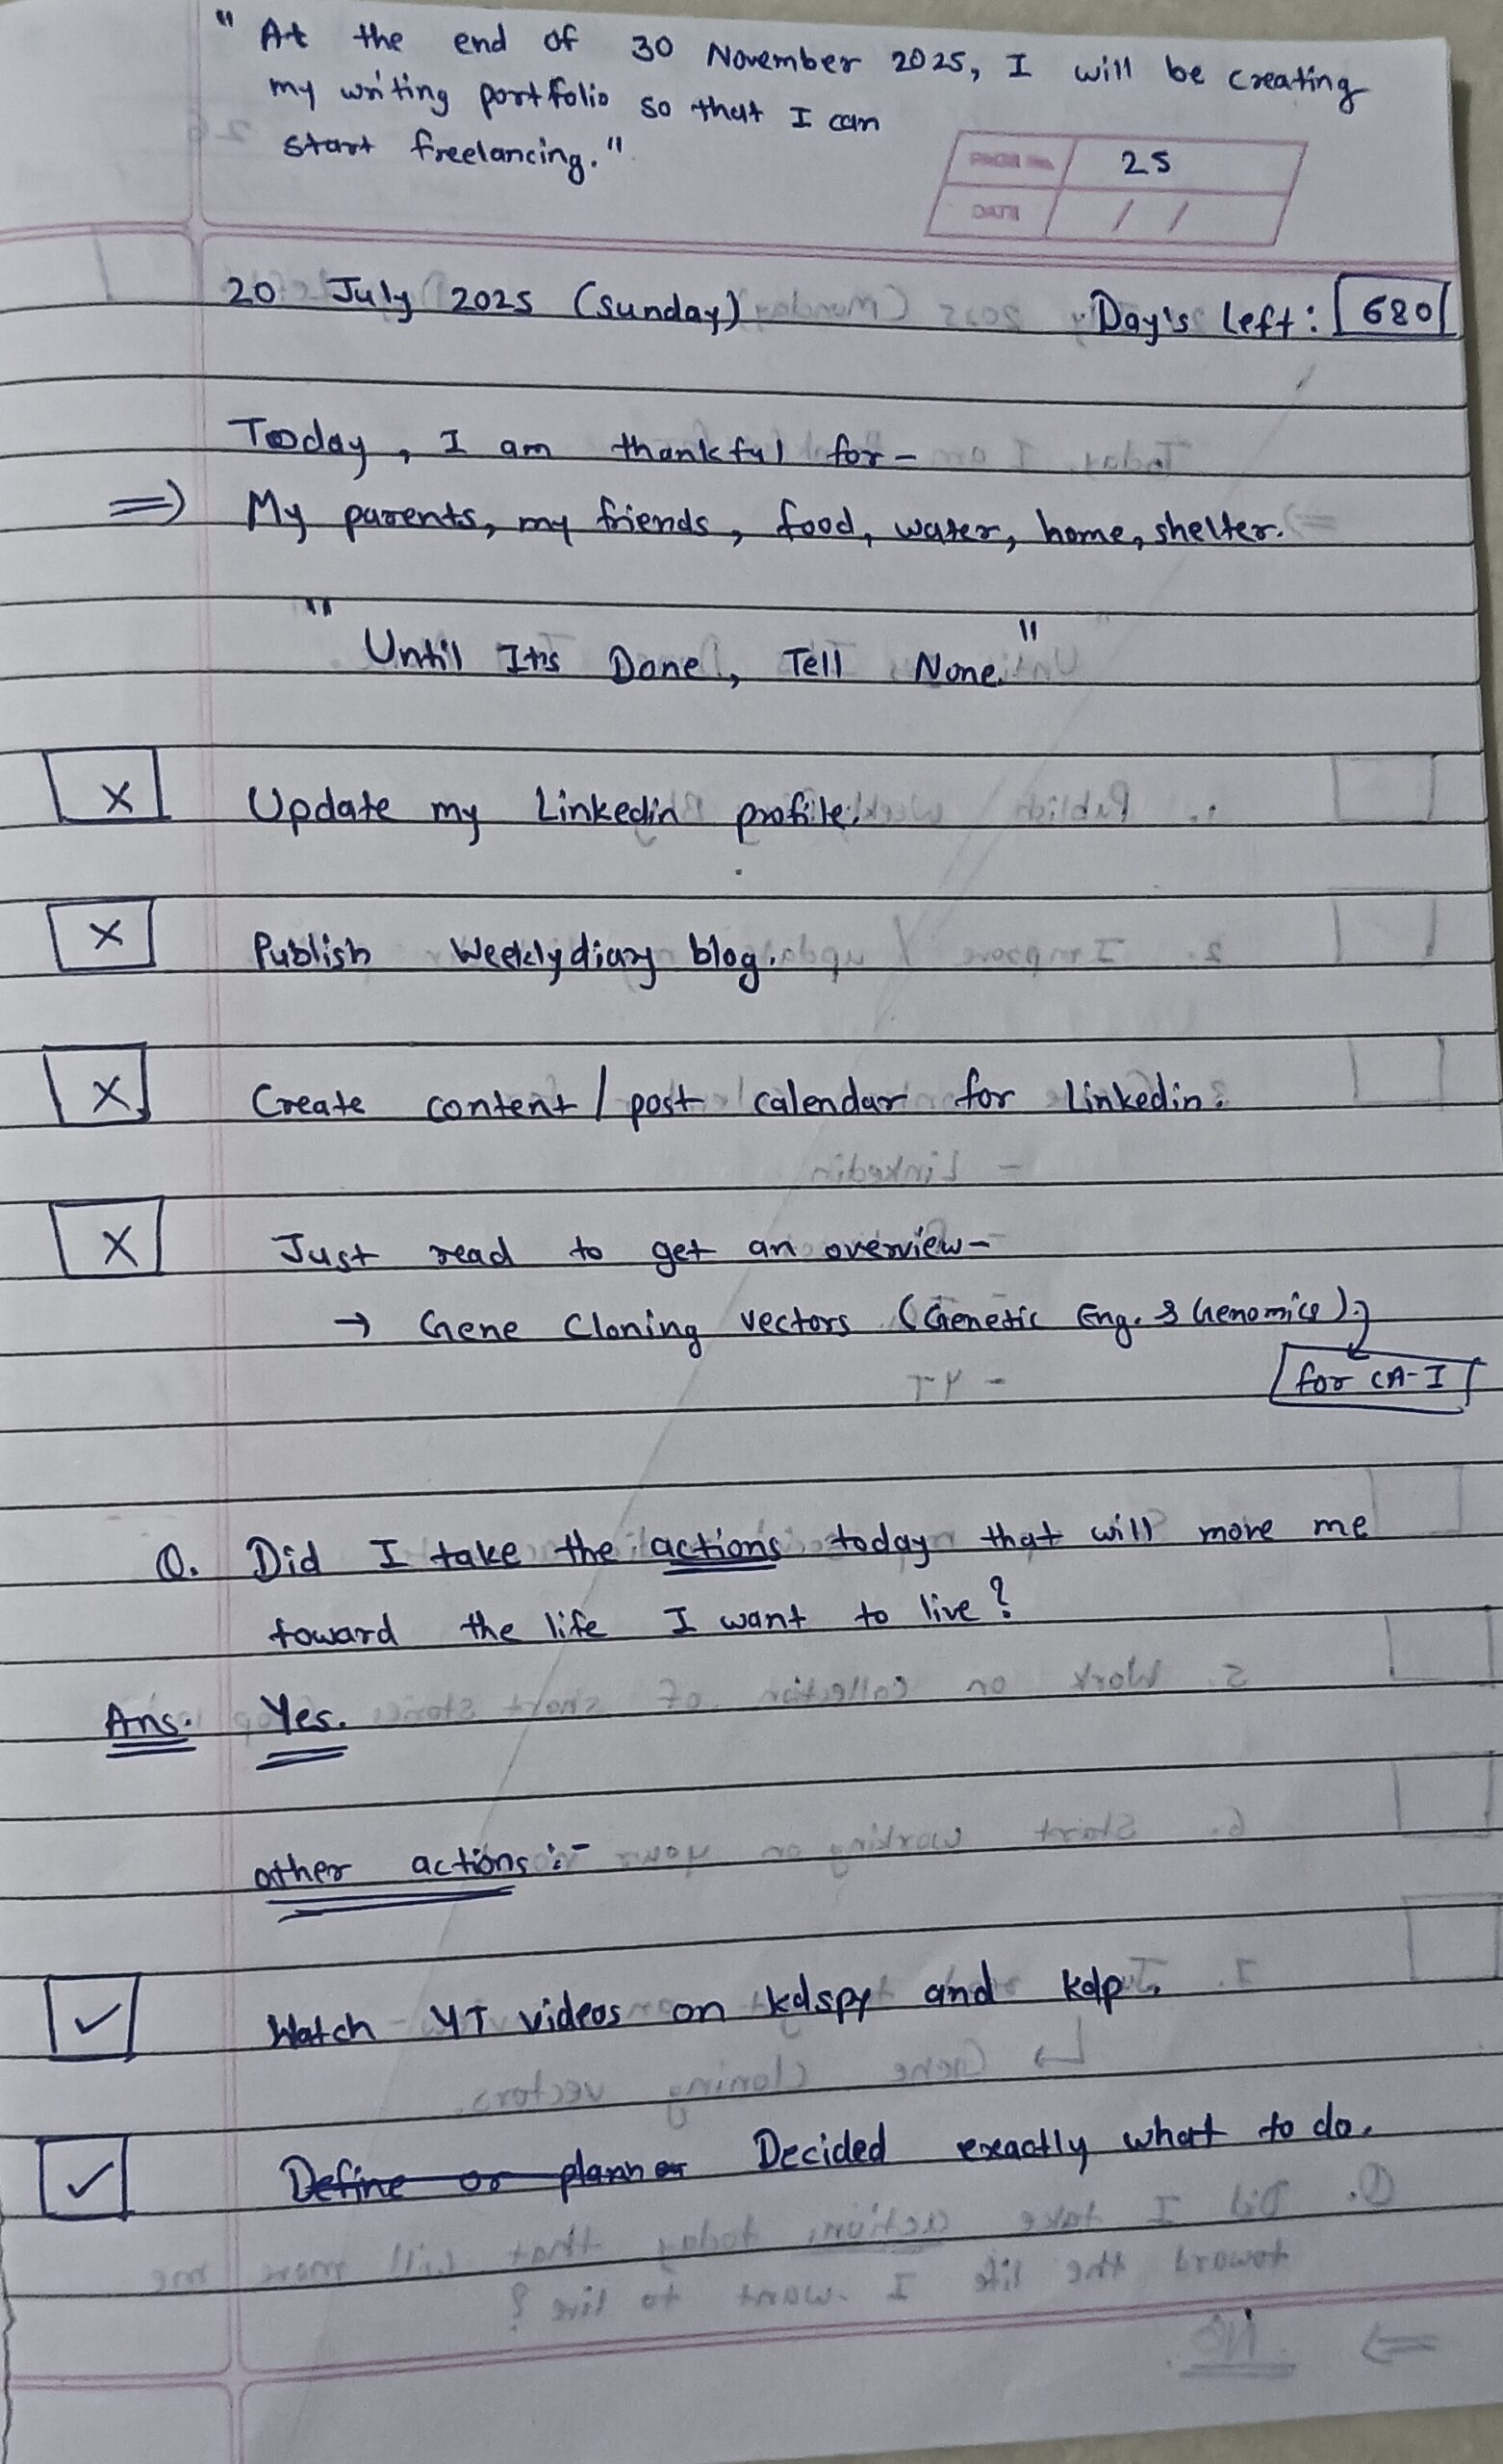 " At the end of 30 November 2025, I will be creating
my writing portfolio so that I can
start freelancing."
PAGE No. 25
DATE / /
20 July 2025 (Sunday) Day's Left: 680
Today, I am thankful for-
=> My parents, my friends, food, water, home, shelter.
" Until It's Done, Tell None."
X Update my Linkedin profile.
X Publish Weekly diary blog.
X Create content / post calendar for Linkedin.
X Just read to get an overview-
→ Gene Cloning vectors (Genetic Eng. & Genomics).
for CA-I
Q. Did I take the actions today that will move me
toward the life I want to live?
Ans. Yes.
other actions :-
✓ Watch YT videos on kdspy and kdp.
✓ Define or plann or Decided exactly what to do.